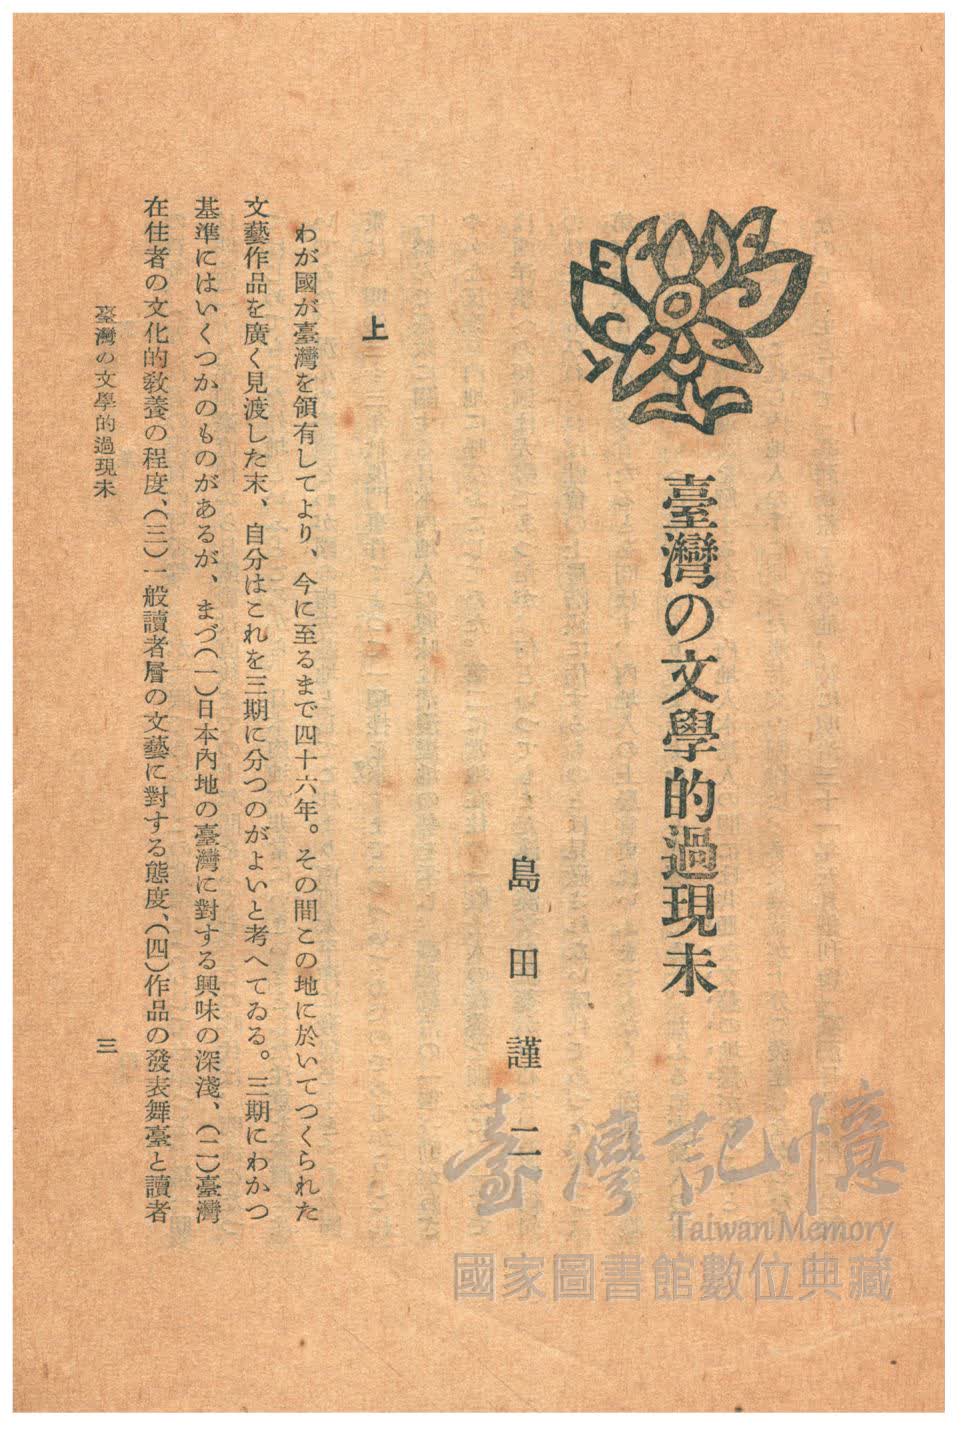 臺灣の文學的過現未
島田謹二
上
わが國が臺灣を領有してより、今に至るまで四十六年。その間この地に於いてつくられた
文藝作品を廣く見渡した末、自分はこれを三期に分つのがよいと考へてゐる。三期にわかつ
基準にはいくつかのものがあるが、まづ(一)日本內地の臺灣に對する興味の深淺、(二)臺灣
在住者の文化的敎養の程度、(三)一般讀者層の文藝に對する態度、(四)作品の發表舞臺と讀者
臺灣の文學的過現未
三
臺灣記憶
Taiwan Memory
國家圖書館數位典藏